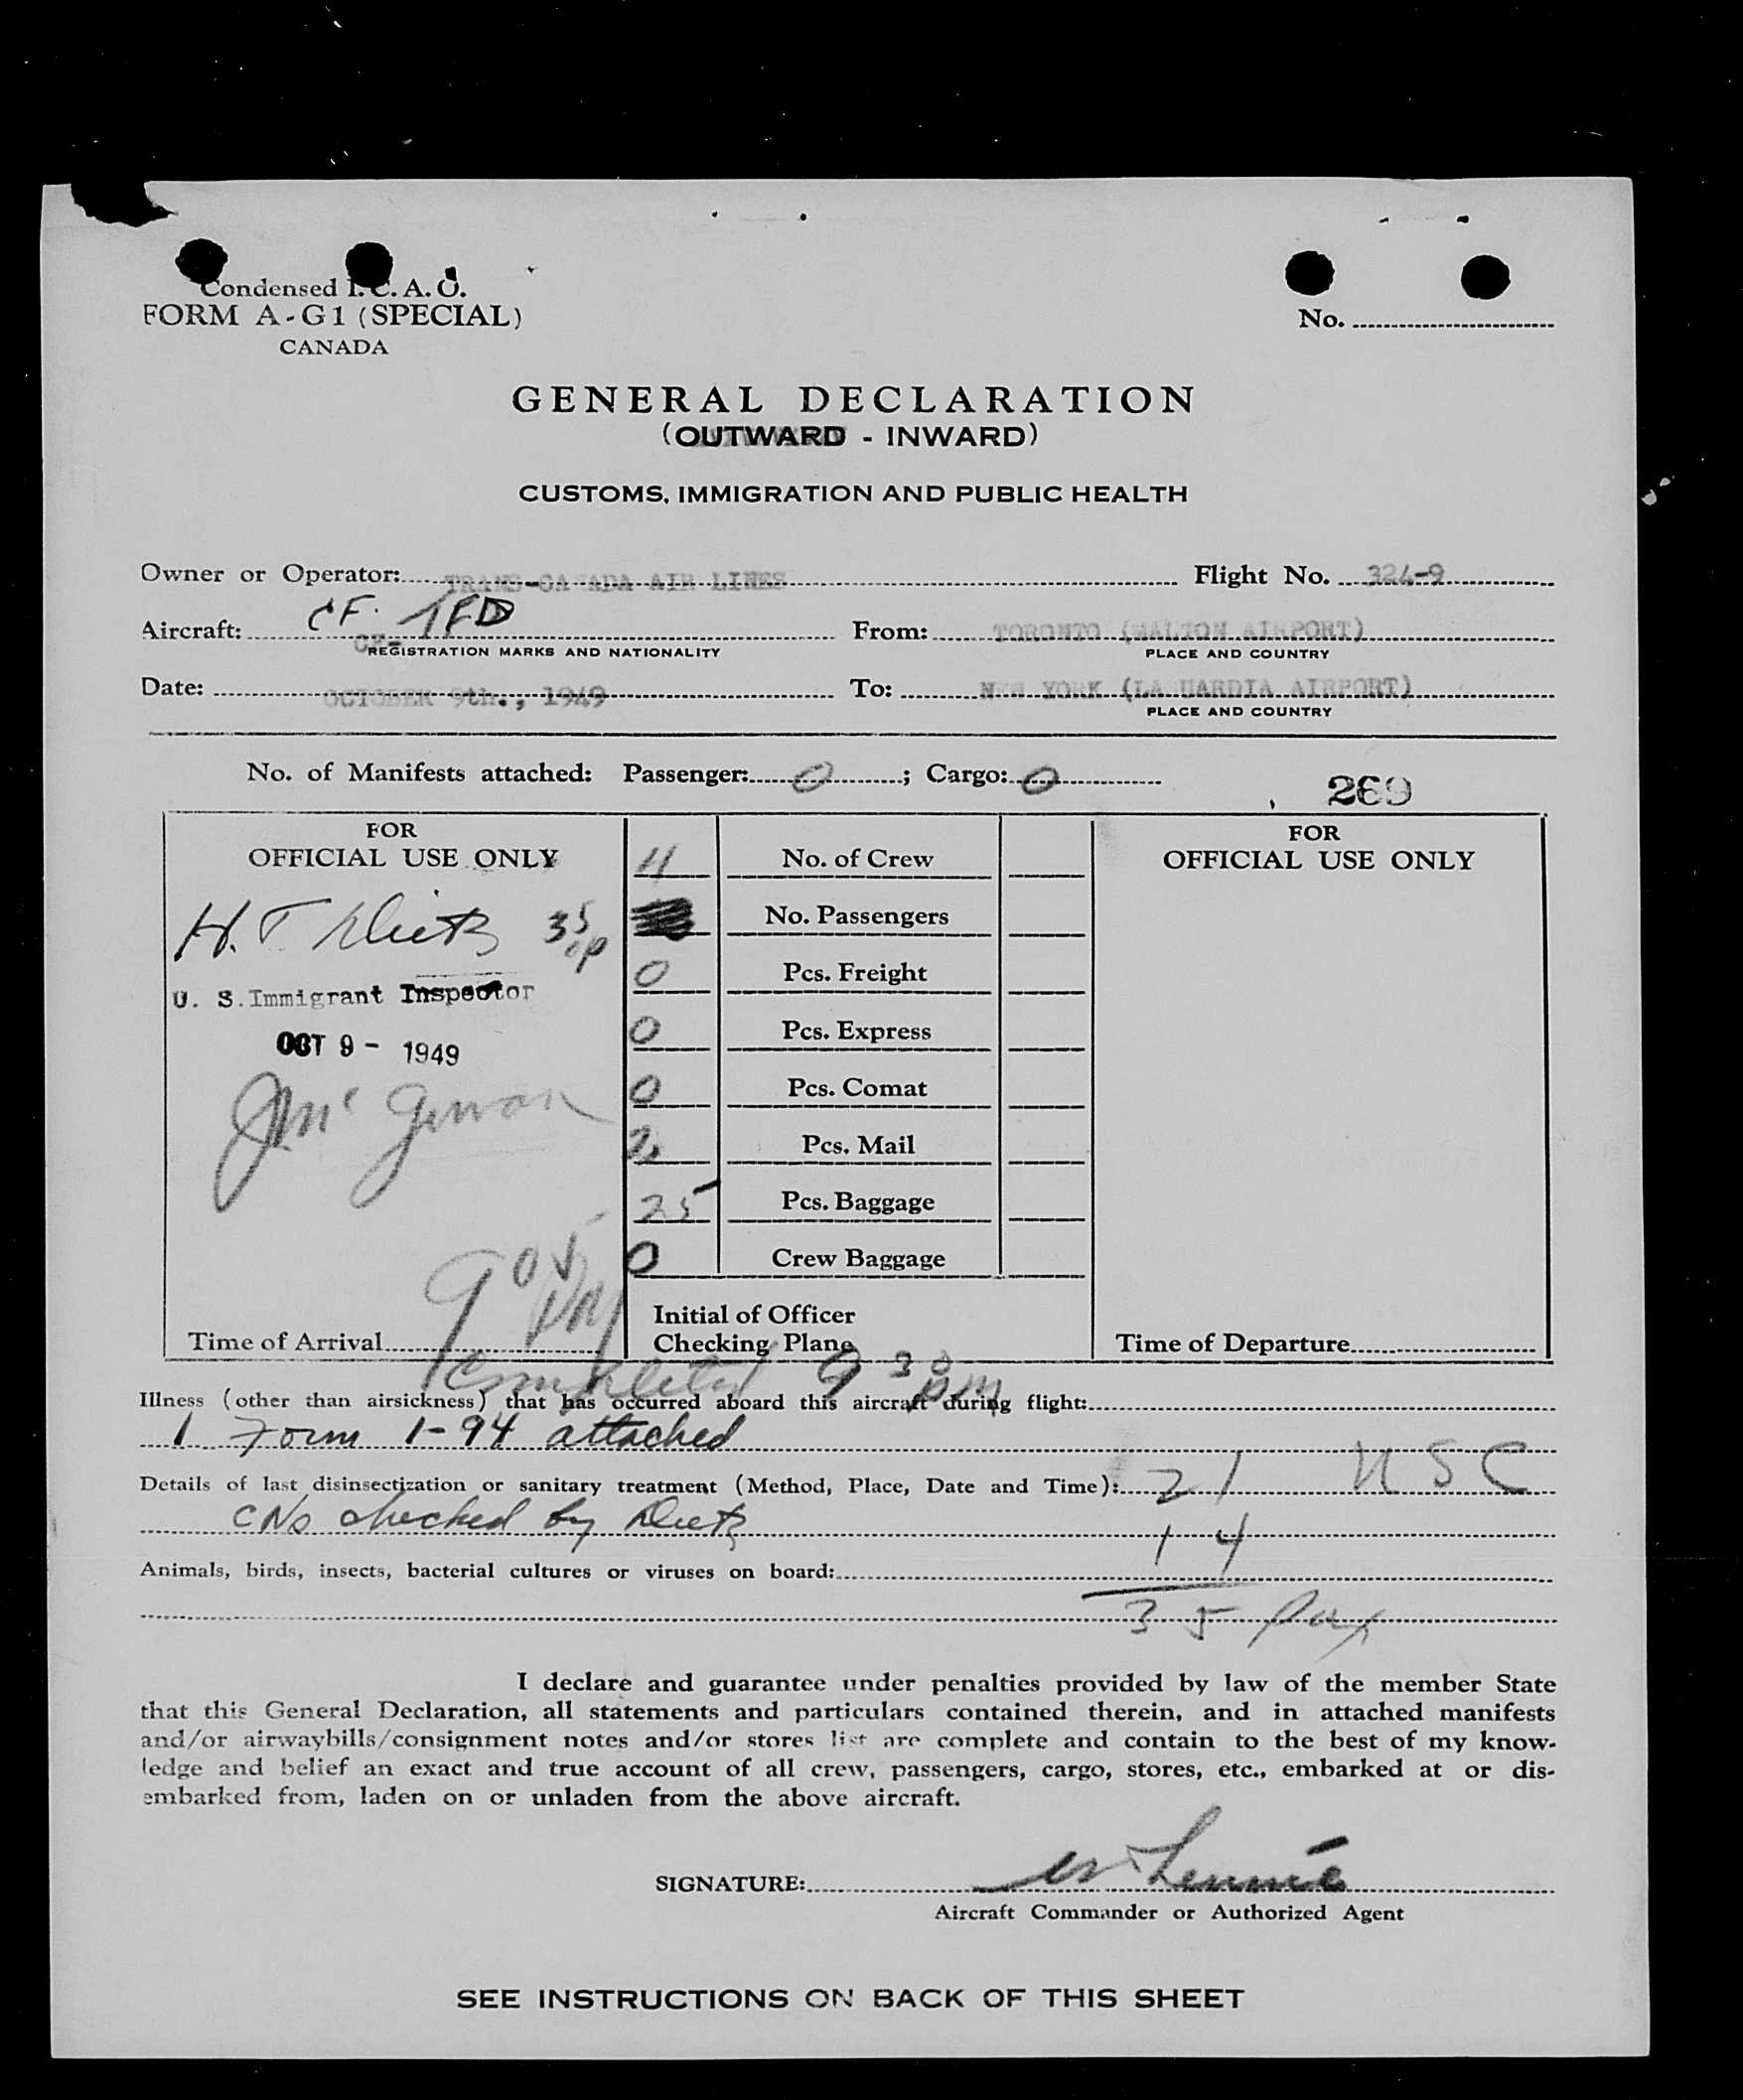 Condensed I.C.A.O.
FORM A-G1 (SPECIAL)
CANADA
No.
GENERAL DECLARATION
(OUTWARD - INWARD)
CUSTOMS, IMMIGRATION AND PUBLIC HEALTH
Owner or Operator: TRANS-CANADA AIR LINES Flight No. 324-9
Aircraft: CF-TFD From: TORONTO (MALTON AIRPORT)
CF-
REGISTRATION MARKS AND NATIONALITY PLACE AND COUNTRY
Date: OCTOBER 9th., 1949 To: NEW YORK (LA GUARDIA AIRPORT)
PLACE AND COUNTRY
No. of Manifests attached: Passenger: 0 ; Cargo: 0
269
FOR
OFFICIAL USE ONLY
H. T. Dietz 35
U. S. Immigrant Inspector
OCT 9 - 1949
905 PM
Time of Arrival
No. of Crew
No. Passengers
0 Pcs. Freight
0 Pcs. Express
0 Pcs. Comat
2 Pcs. Mail
25 Pcs. Baggage
0 Crew Baggage
Initial of Officer
Checking Plane
FOR
OFFICIAL USE ONLY
Time of Departure
Completed 9 30 pm
Illness (other than airsickness) that has occurred aboard this aircraft during flight:
1 Form 1-94 attached
Details of last disinsectization or sanitary treatment (Method, Place, Date and Time): 21 USC
CNs checked by Dietz 14
Animals, birds, insects, bacterial cultures or viruses on board:
35 Pax
I declare and guarantee under penalties provided by law of the member State
that this General Declaration, all statements and particulars contained therein, and in attached manifests
and/or airwaybills/consignment notes and/or stores list are complete and contain to the best of my know-
ledge and belief an exact and true account of all crew, passengers, cargo, stores, etc., embarked at or dis-
embarked from, laden on or unladen from the above aircraft.
SIGNATURE: W Lennie
Aircraft Commander or Authorized Agent
SEE INSTRUCTIONS ON BACK OF THIS SHEET